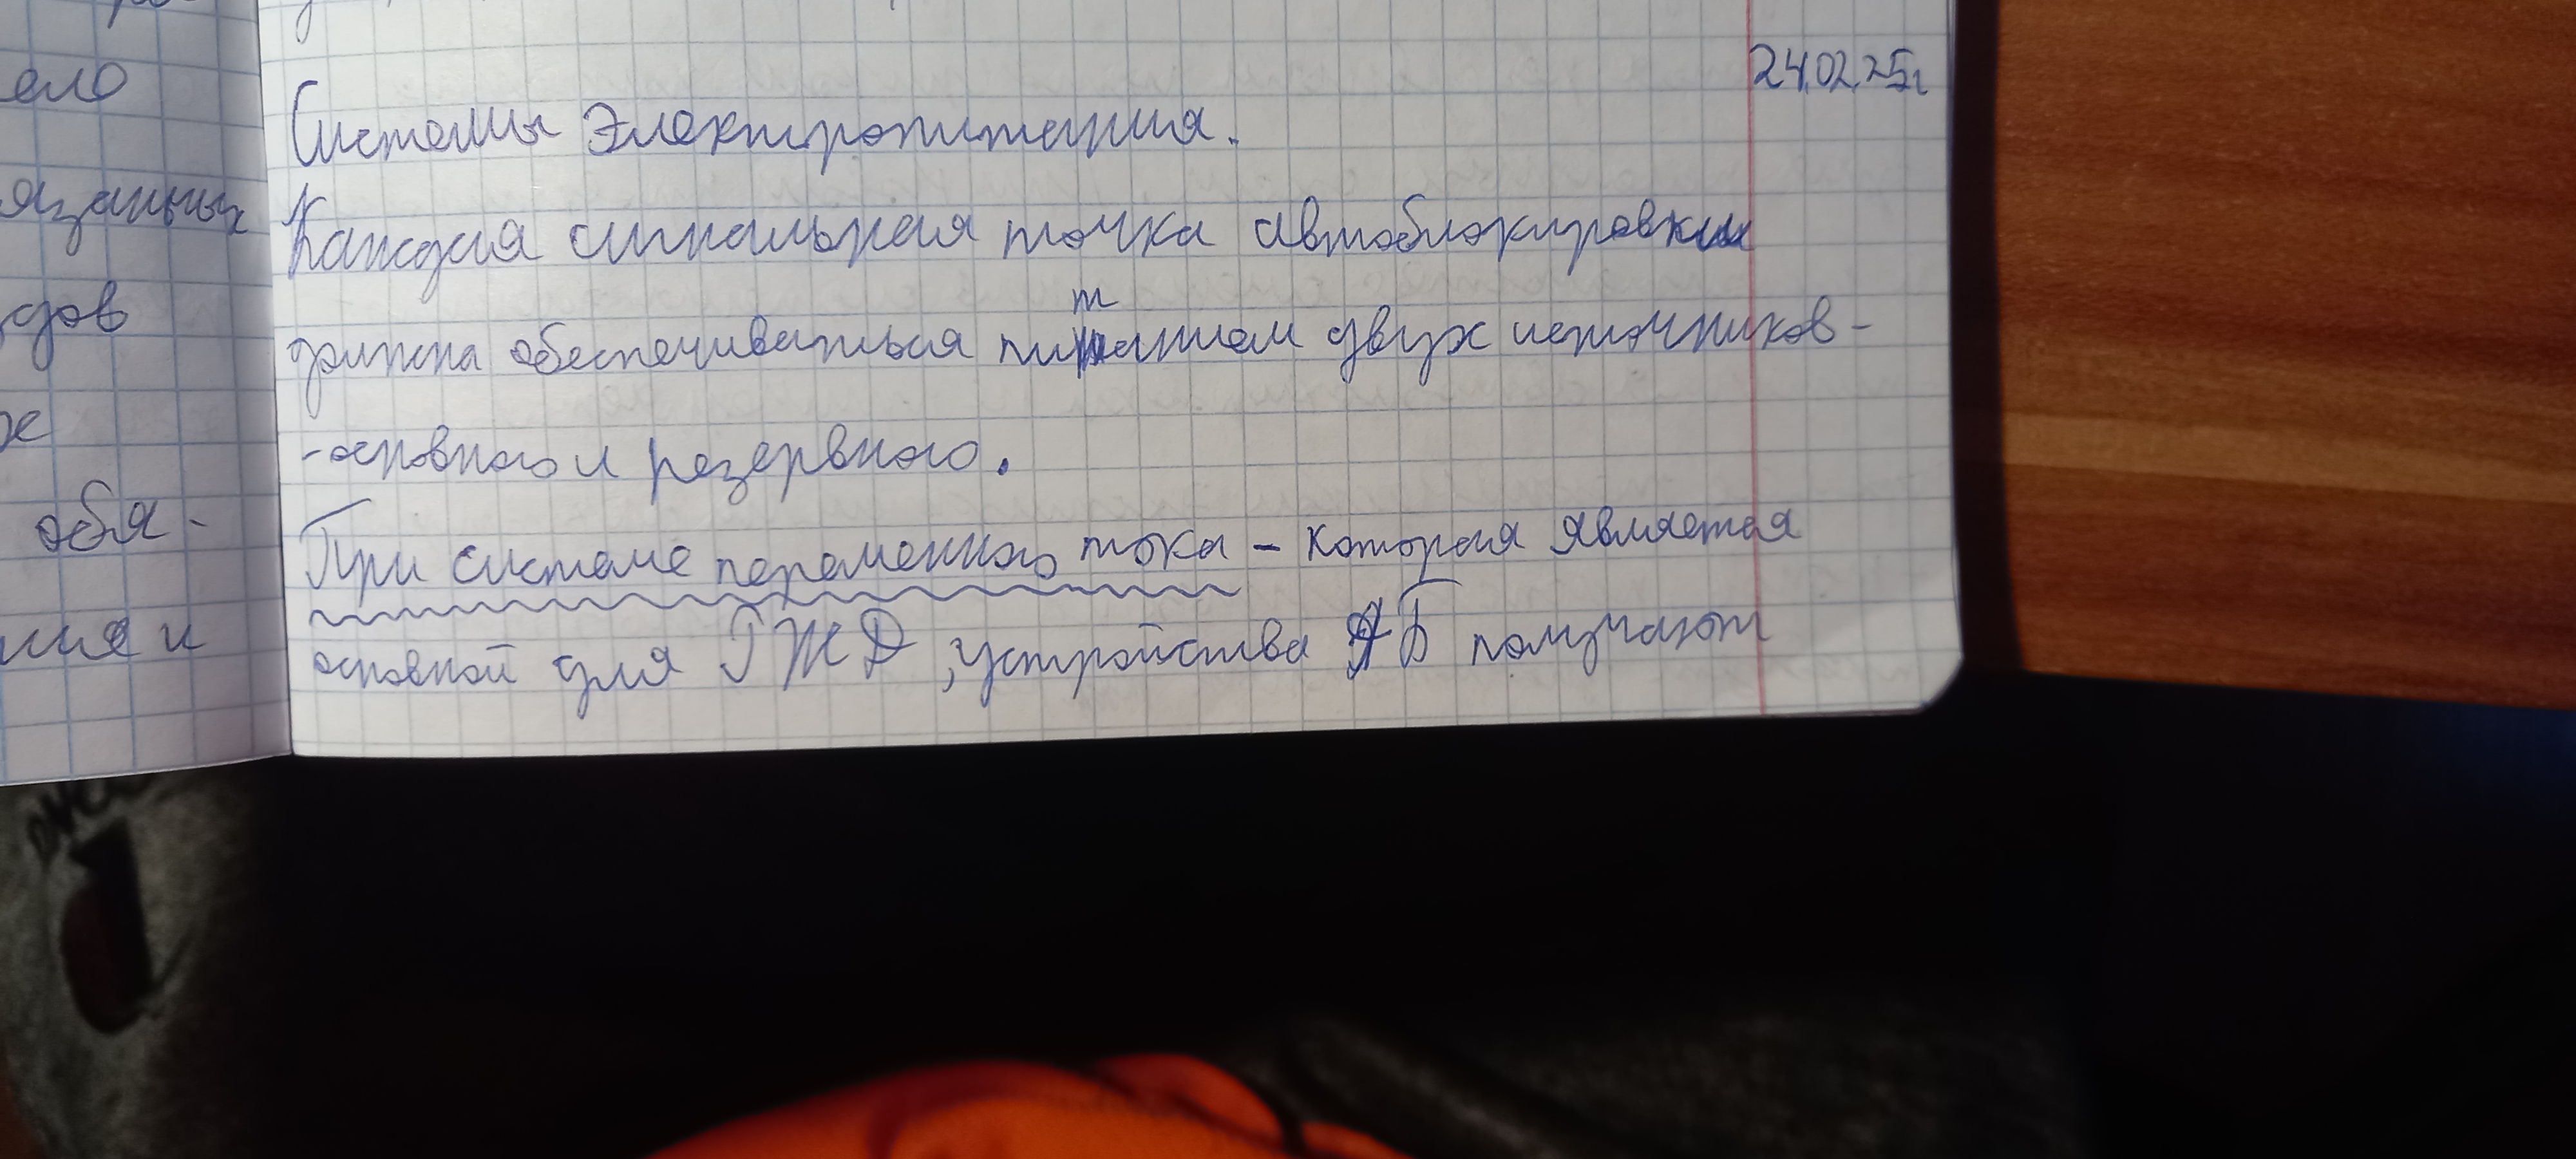 ело
язанных
дов
же
обя-
ния и
24.02.25г
Системы Электропитания.
Каждая сигнальная точка автоблокировки
должна обеспечиваться питанием двух источников-
-основного и резервного.
При системе переменного тока - которая является
основной для РЖД, устройства АБ получают